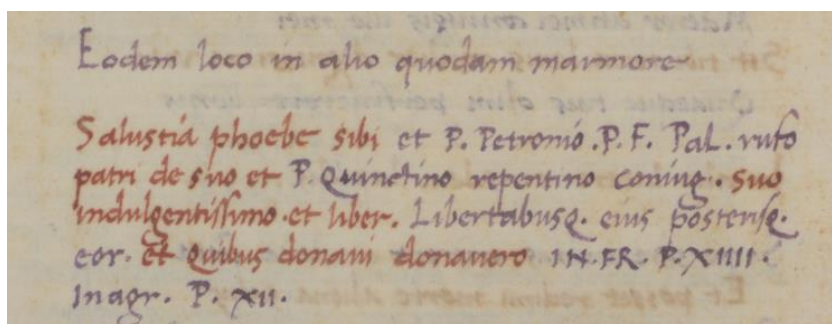 Eodem loco in alio quodam marmore
Salustia phoebe sibi et P. Petronio .P. F. Pal . rufo
patri de suo et P. Quinctino repentino coniug . suo
indulgentissimo . et liber . Libertabusq . eius posterisq .
eor . et quibus donavi donavero IN . FR . P . XIIII .
In agr . P . XII .